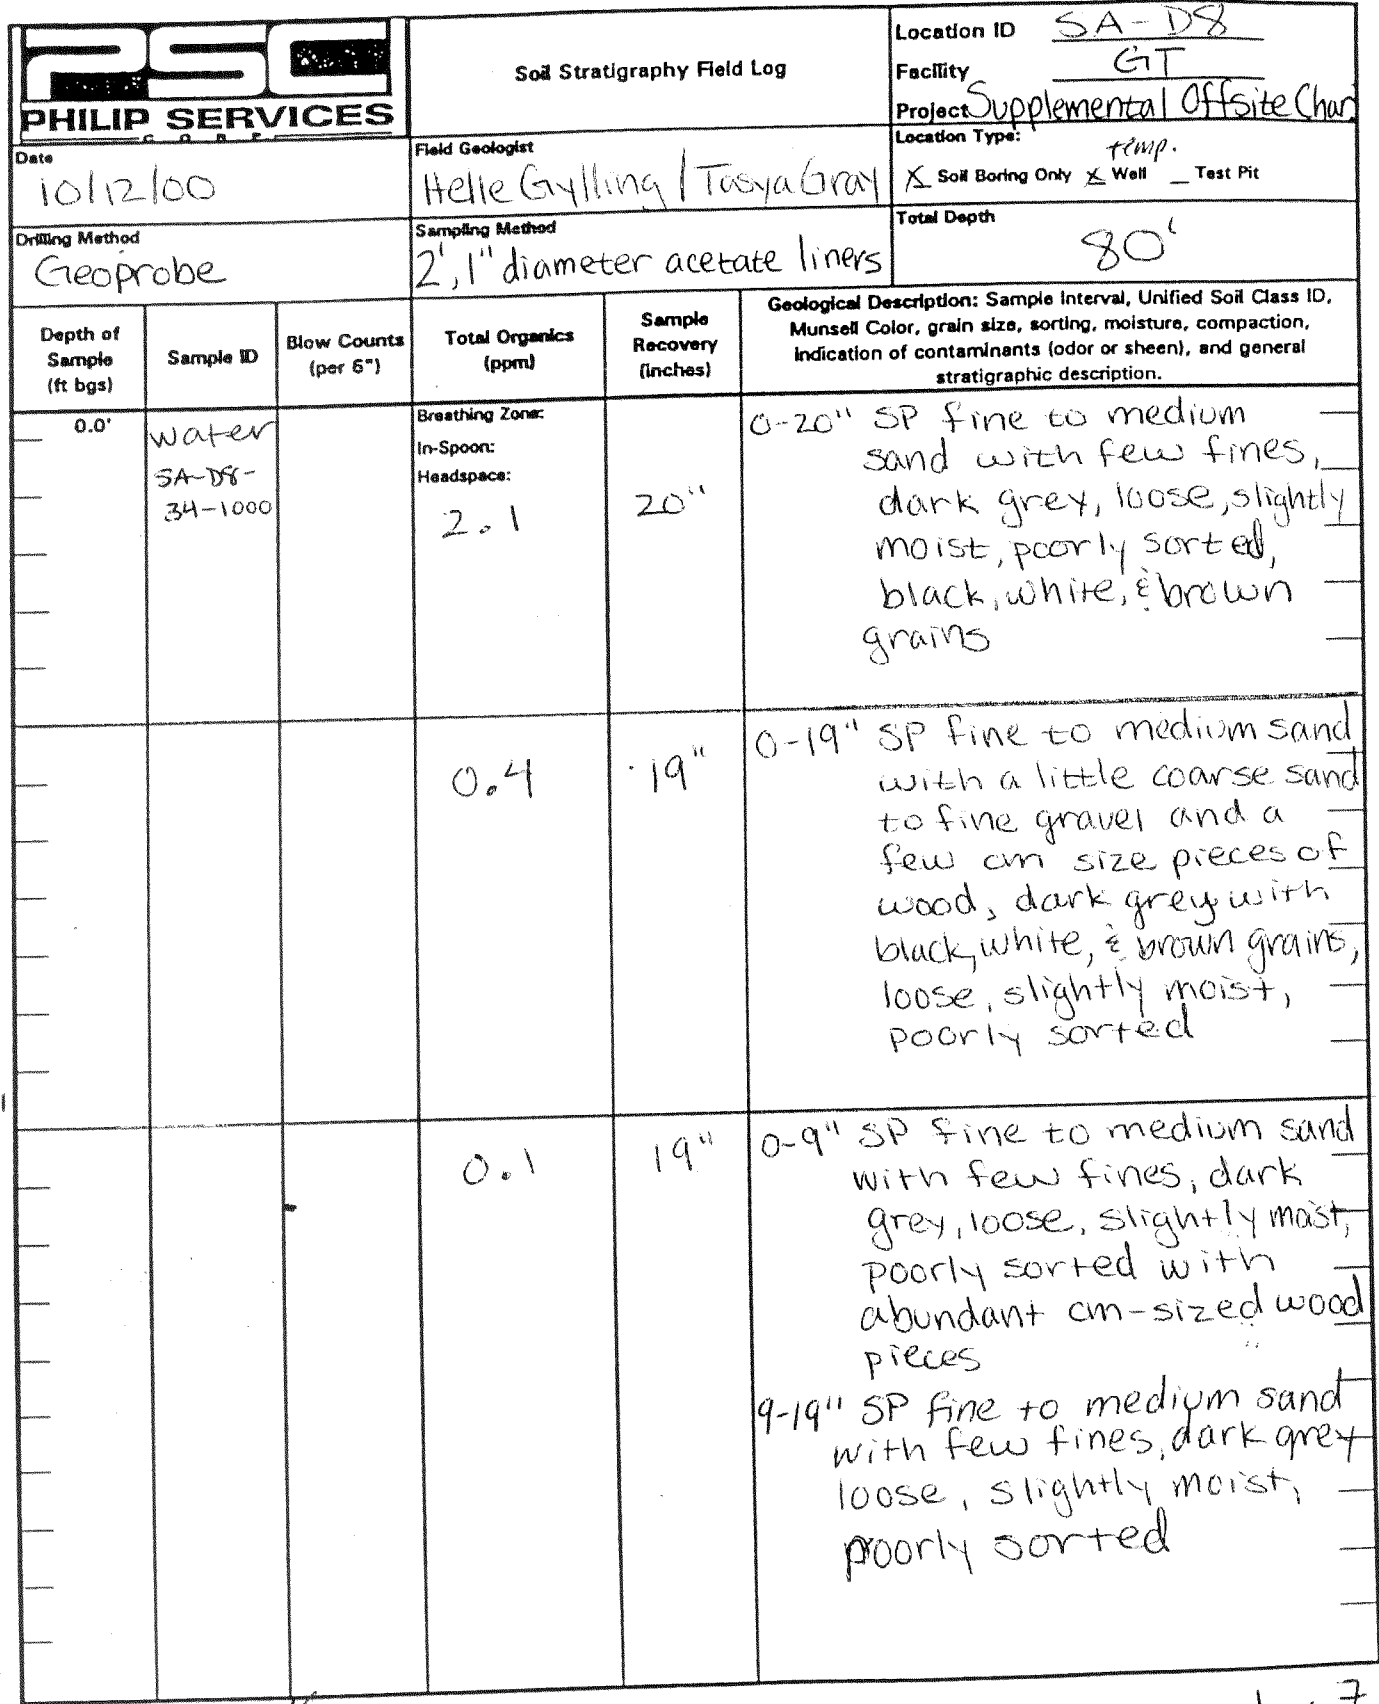 PSC
PHILIP SERVICES
CORP
Soil Stratigraphy Field Log
Location ID SA-D8
Facility GT
Project Supplemental Offsite Char
Date
10/12/00
Field Geologist
Helle Gylling / Tasya Gray
Location Type: temp.
X Soil Boring Only X Well _ Test Pit
Drilling Method
Geoprobe
Sampling Method
2', 1" diameter acetate liners
Total Depth
80'
Depth of
Sample
(ft bgs)
Sample ID
Blow Counts
(per 6")
Total Organics
(ppm)
Sample
Recovery
(inches)
Geological Description: Sample Interval, Unified Soil Class ID,
Munsell Color, grain size, sorting, moisture, compaction,
indication of contaminants (odor or sheen), and general
stratigraphic description.
0.0'
water
SA-D8-
34-1000
Breathing Zone:
In-Spoon:
Headspace:
2.1
20"
0-20" SP fine to medium
sand with few fines,
dark grey, loose, slightly
moist, poorly sorted,
black, white, & brown
grains
0.4
19"
0-19" SP fine to medium sand
with a little coarse sand
to fine gravel and a
few cm size pieces of
wood, dark grey with
black, white, & brown grains,
loose, slightly moist,
poorly sorted
0.1
19"
0-9" SP fine to medium sand
with few fines, dark
grey, loose, slightly moist,
poorly sorted with
abundant cm-sized wood
pieces
9-19" SP fine to medium sand
with few fines, dark grey
loose, slightly moist,
poorly sorted
7